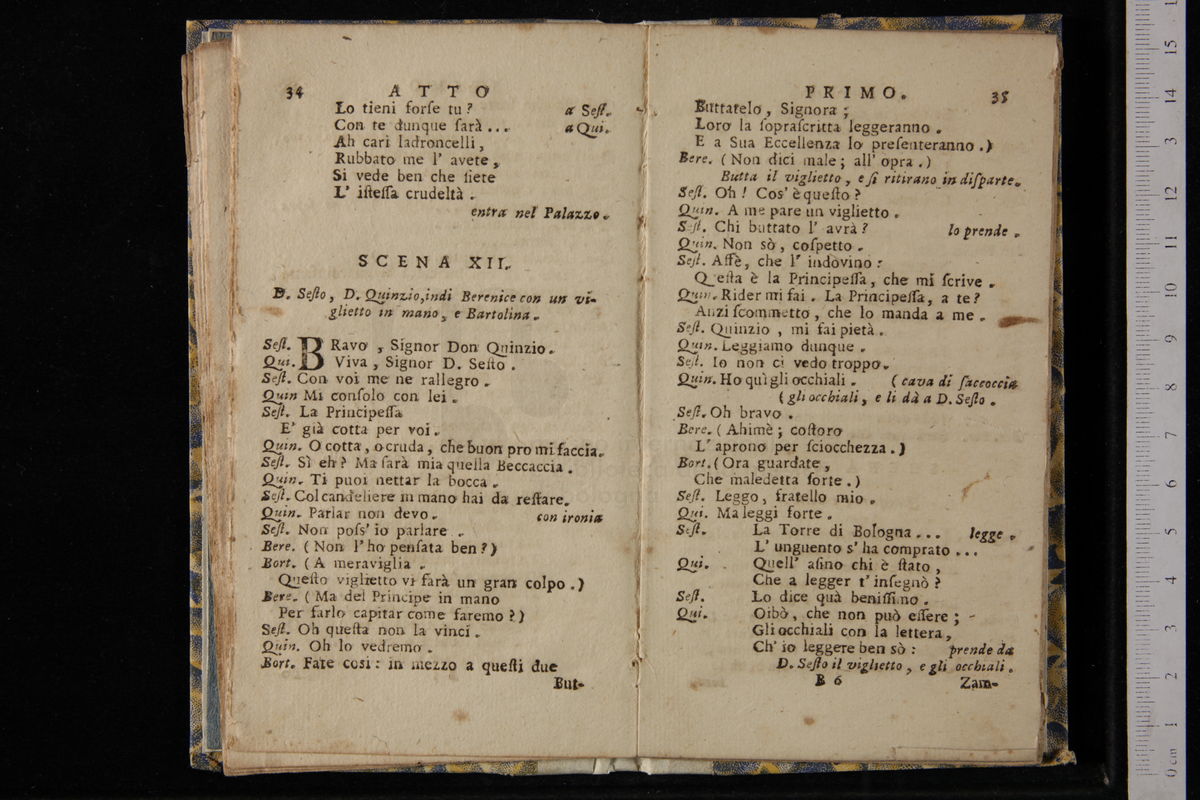 34 ATTO
Lo tieni forſe tu? a Seſt.
Con te dunque ſarà... a Qui.
Ah cari ladroncelli,
Rubbato me l' avete,
Si vede ben che ſiete
L' iſteſſa crudeltà.
entra nel Palazzo.
SCENA XII.
D. Seſto, D. Quinzio, indi Berenice con un vi-
glietto in mano, e Bartolina.
Seſt. BRavo, Signor Don Quinzio.
Qui. Viva, Signor D. Seſto.
Seſt. Con voi me ne rallegro.
Quin Mi conſolo con lei.
Seſt. La Principeſſa
E' già cotta per voi.
Quin. O cotta, o cruda, che buon pro mi faccia.
Seſt. Sì eh? Ma ſarà mia quella Beccaccia.
Quin. Ti puoi nettar la bocca.
Seſt. Col candeliere in mano hai da reſtare.
Quin. Parlar non devo. con ironia
Seſt. Non poſs' io parlare.
Bere. (Non l' ho penſata ben?)
Bort. (A meraviglia.
Queſto viglietto vi farà un gran colpo.)
Bere. (Ma del Principe in mano
Per farlo capitar come faremo?)
Seſt. Oh queſta non la vinci.
Quin. Oh lo vedremo.
Bort. Fate così: in mezzo a queſti due
But-
PRIMO. 35
Buttatelo, Signora;
Loro la ſopraſcritta leggeranno.
E a Sua Eccellenza lo preſenteranno.)
Bere. (Non dici male; all' opra.)
Butta il viglietto, e ſi ritirano in diſparte.
Seſt. Oh! Cos' è queſto?
Quin. A me pare un viglietto.
Seſt. Chi buttato l' avrà? lo prende.
Quin. Non sò, coſpetto.
Seſt. Affè, che l' indovino:
Queſta è la Principeſſa, che mi ſcrive.
Quin. Rider mi fai. La Principeſſa, a te?
Anzi ſcommetto, che lo manda a me.
Seſt. Quinzio, mi fai pietà.
Quin. Leggiamo dunque.
Seſt. Io non ci vedo troppo.
Quin. Ho quì gli occhiali. (cava di ſaccoccia
(gli occhiali, e li dà a D. Seſto.
Seſt. Oh bravo.
Bere. (Ahimè; coſtoro
L' aprono per ſciocchezza.)
Bort. (Ora guardate,
Che maledetta ſorte.)
Seſt. Leggo, fratello mio.
Qui. Ma leggi forte.
Seſt. La Torre di Bologna... legge.
L' unguento s' ha comprato...
Qui. Quell' aſino chi è ſtato,
Che a legger t' inſegnò?
Seſt. Lo dice quà beniſſimo.
Qui. Oibò, che non può eſſere;
Gli occhiali con la lettera,
Ch' io leggere ben sò: prende da
D. Seſto il viglietto, e gli occhiali.
B 6 Zam-